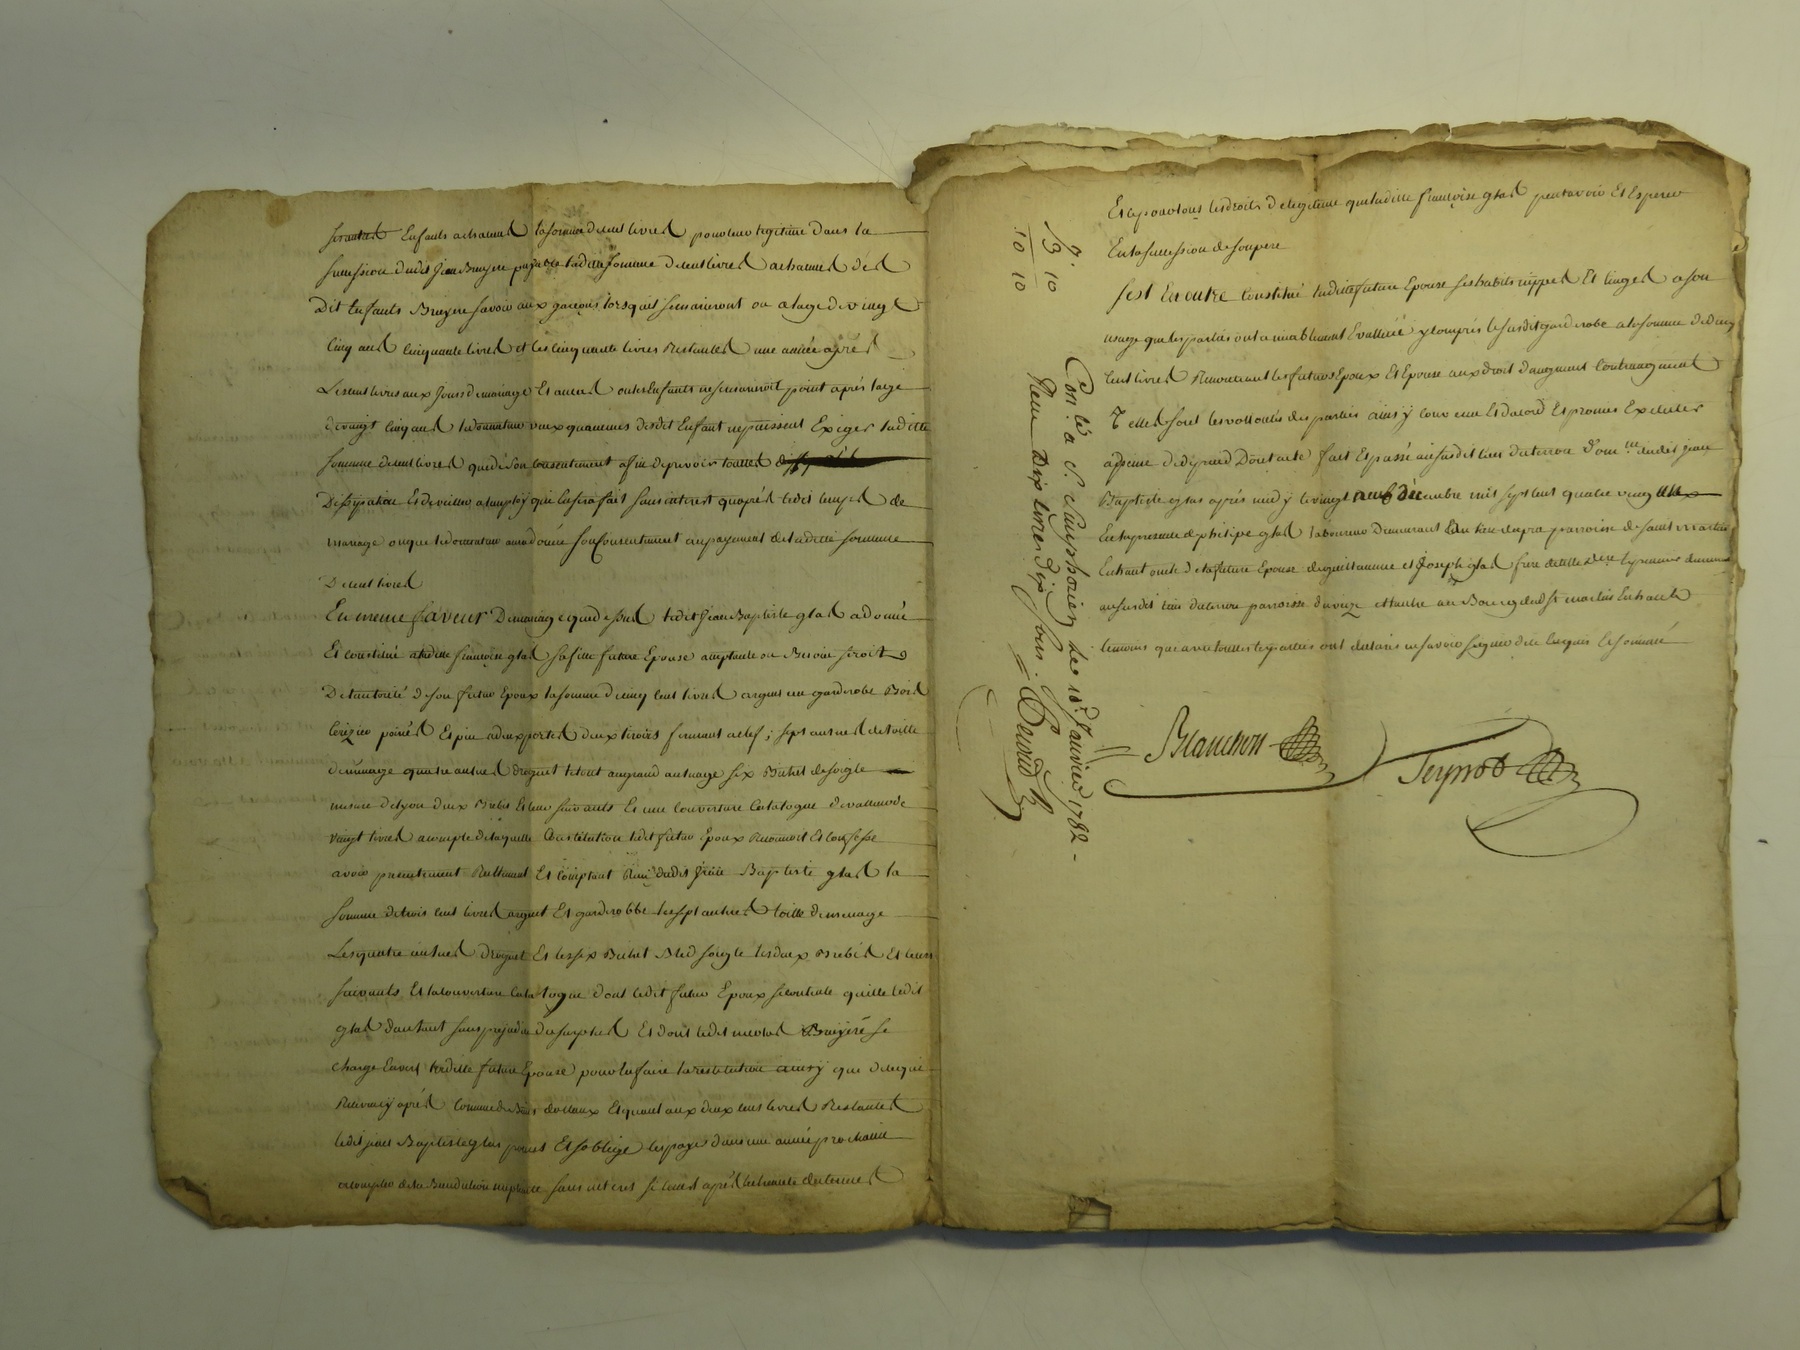 ses autres Enfants achacune la somme de cent livres pour leur legitime dans la
succession dudit Jean Bruyere payable laditte somme de cent livres achacuns des
Dit Enfants Bruyere savoir aux garçons lorsquils se mairiront ou a lage de vingt
cinq ans cinquante livres et les cinquante livres Restantes une année après
Les cent livres aux Jours de mariage Et au cas ou les Enfants ne se mairoit point après lage
de vingt cinq ans la donnatrice veux quaucuns desdit Enfant ne puissent Exiger laditte
somme de cent livres que de son consentement afin de prevoir touttes
Dissipation Et de veiller a lemploy qui en sera fait sans interest quaprès ledit temps de
mariage ou que la donnatrice aura donné son consentement au payement de laditte somme
De cent livres
En meme faveur De mariage que dessus ledit Jean Baptiste glas a donné
Et constitué a laditte françoise glas sa fille future Epouse acceptante ou Besoin seroit
De lautorité de son futur Epoux la somme de cinq cent livres argent un garderobe Bois
cerizier poirier Et pin a deux portes deux tiroirs fermant a clef ; sept aunes de toille
de menage quatre aunes droguet le tout au grand aunage six Bichet de seigle
mesure de lyon deux Brebis Et leur suivants Et une couverture catalogne de valleur de
vingt livres a compte de laquelle Constitution ledit futur Epoux Reconnoit Et confesse
avoir presentement Reellement Et comptant Reçu dudit Jean Baptiste glas la
somme de trois cent livres argent Et garderobbe les sept aunes toille de menage
Les quatre aunes droguet Et les six Bichet Bled seigle les deux Brebis Et leurs
suivants Et la couverture catalogne dont ledit futur Epoux se contente quitte ledit
glas dautant sans prejudice du surplus Et dont ledit Bruyere se
charge Envers laditte future Epouse pour en faire la restitution ainsy que de ce qui
Recevra cy après Et quant aux deux cent livres Restantes
ledit jean Baptiste glas promet Et soblige les payer dans une année prochaine
a compter de la Benediction nuptialle sans interest si ce nest après lecheance du terme
Et ce pour tous les droits de legitime que laditte françoise glas peut avoir Et Esperer
En la succession de son pere
sest En outre constitué laditte future Epouse ses habits nippes Et linges a son
usage que les parties ont amiablement Evallué y compris le susdit garderobe a la somme de cinq
cent livres Renonceant les futurs Epoux Et Epouse aux droit daugment Contreaugment
Telles sont les vollontés des parties ainsy convenu Et dacord Et promis Executer
a peine de depends Dont acte fait Et passé au susdit lieu du terrou Domle dudit jean
Baptiste glas après midy le vingt neuf decembre mil sept cent quatre vingt un
En la presence de philipe glas laboureur Demeurant parroisse de saint martin
En haut oncle de la future Epouse Et Joseph glas frere
au susdit lieu du terrou parroisse duvize et lautre au Bourg dudit st martin En haut
temoins que avec touttes les parties ont declaré ne savoir signer de ce enquis Et sommé
Blanchon
Teyrnod
7.
3 10
10 10
Con.lé a S. Simphorien Le 10e Janvier 1782
Reçu Dix livres Dix sols